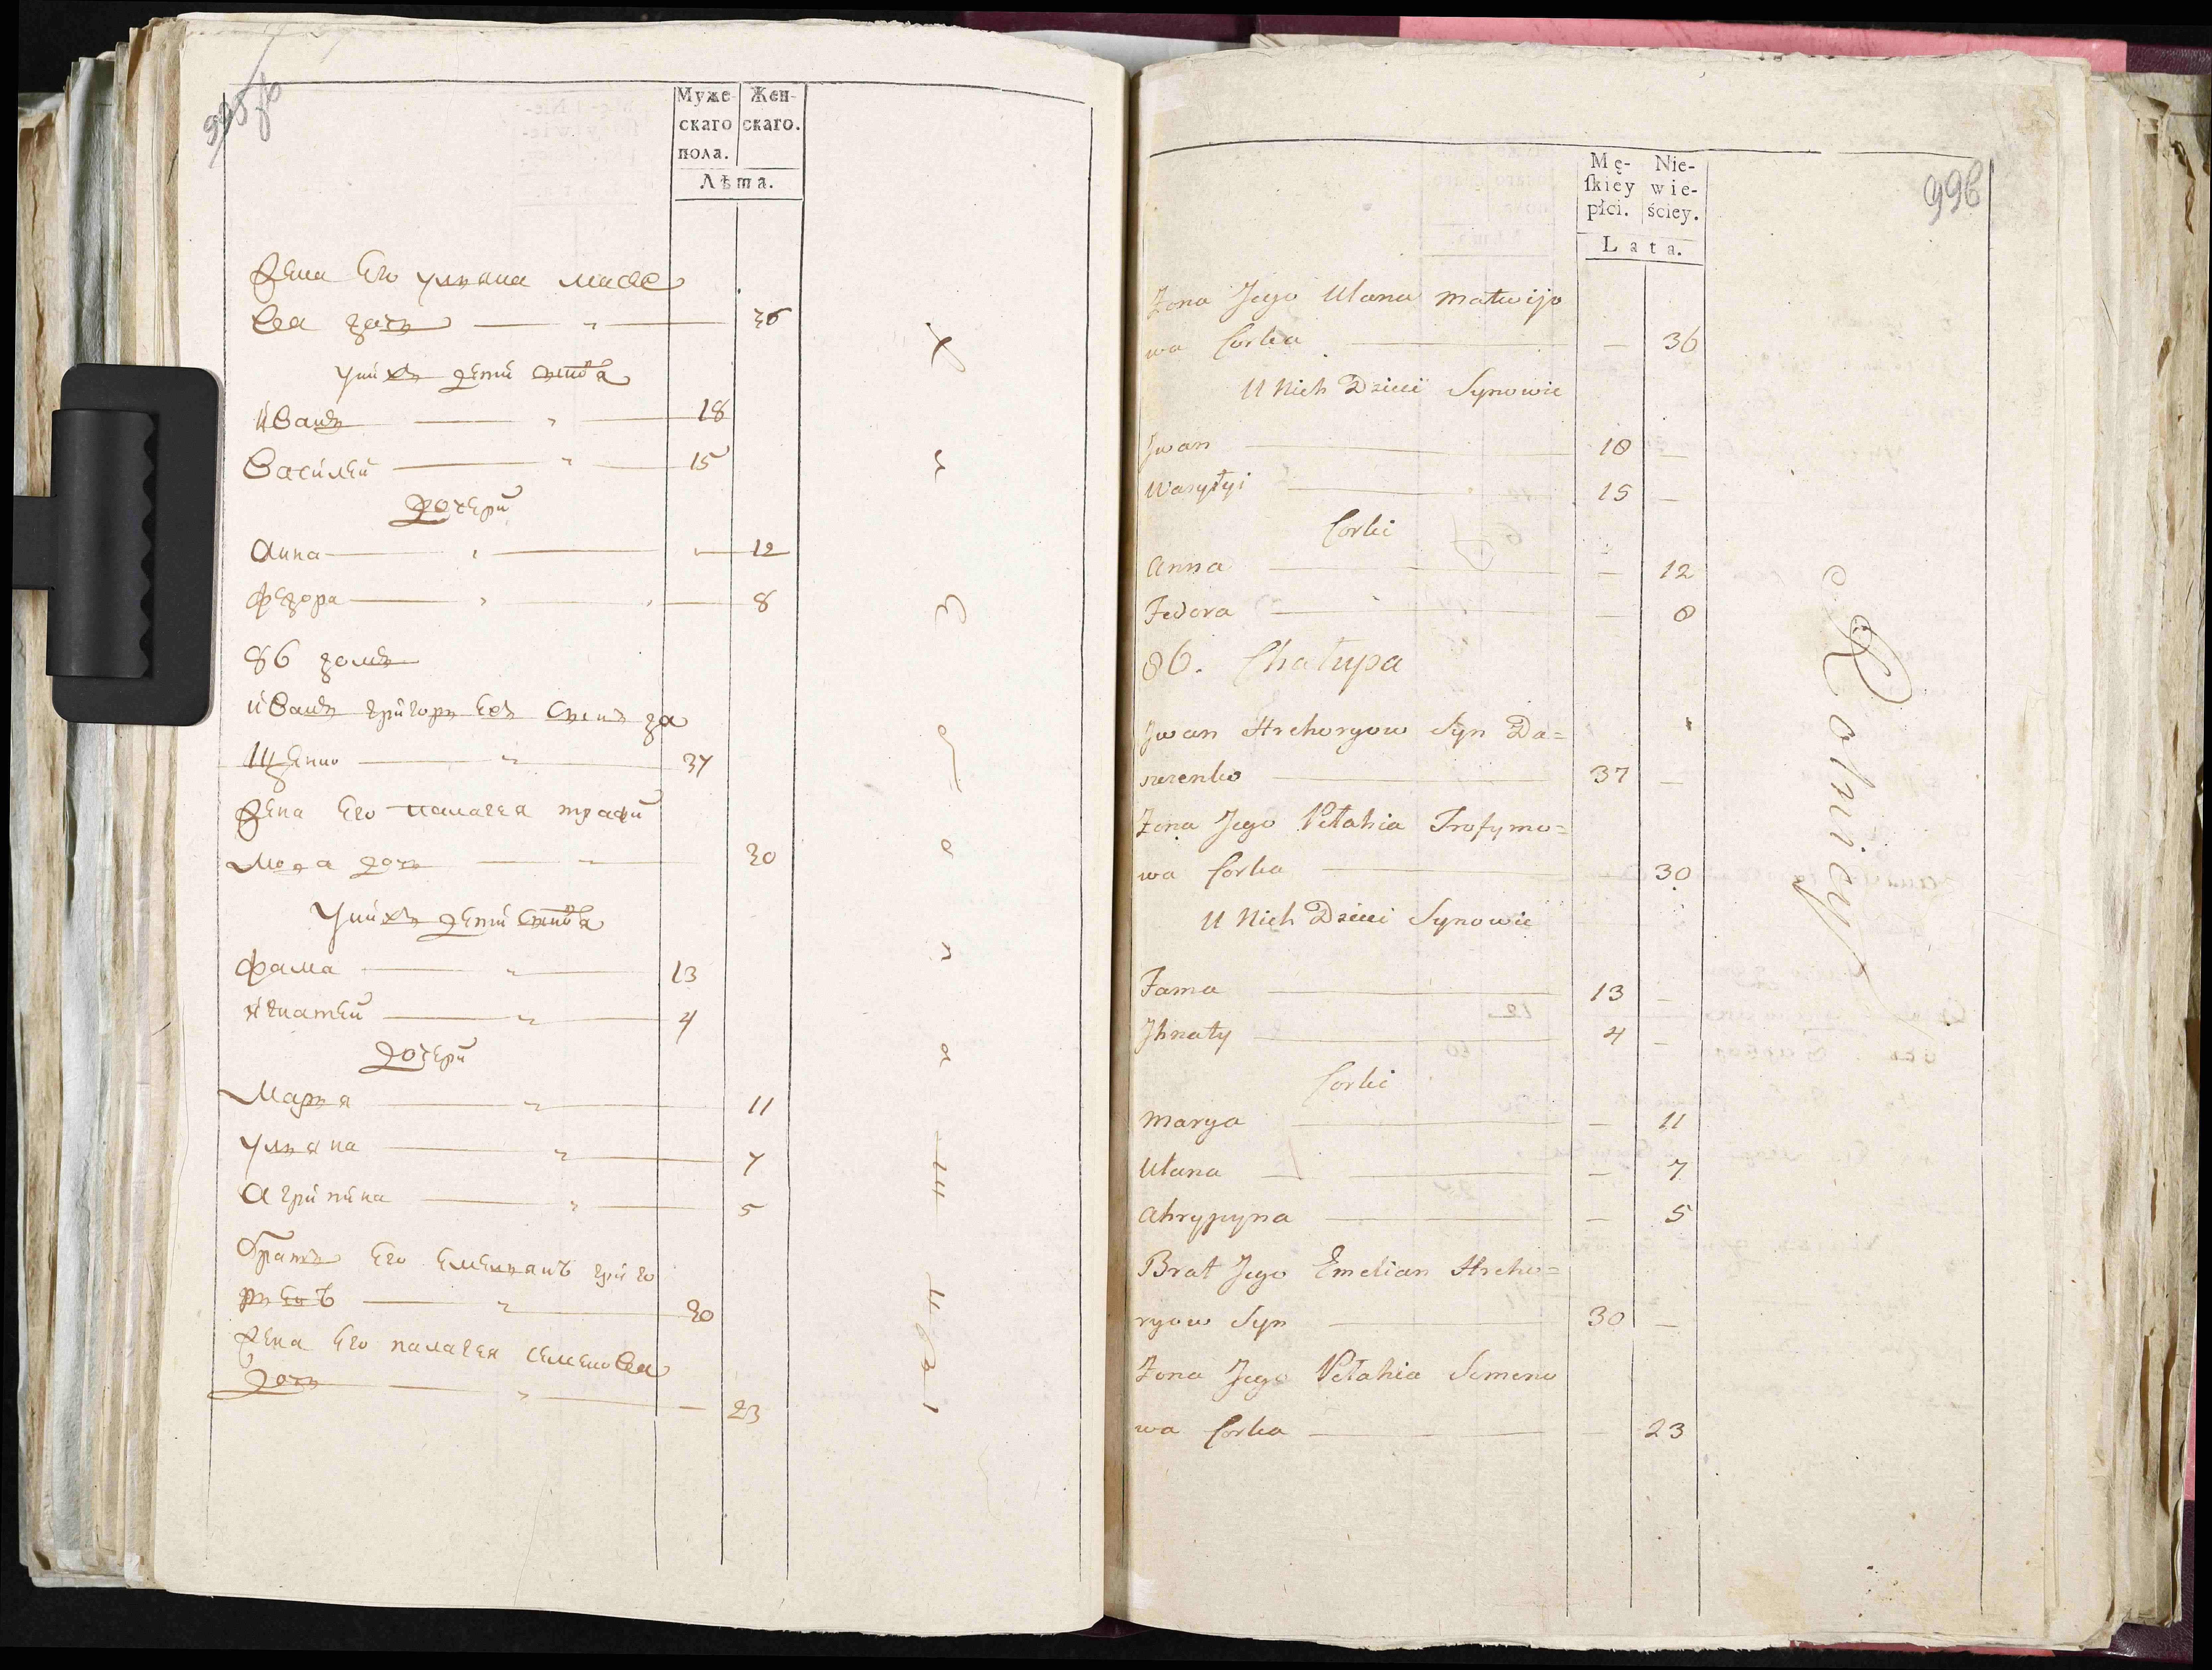 Муже- Жен-
скаго скаго.
пола.
Лѣта.
Жена Его ульяна матве
ева дочь 36
у нихъ дети сынова
иванъ 18
василей 15
дочери
анна 12
федора 8
86 домъ
иванъ григорьевъ сынъ да
щенко 37
Жена Его палагея трафи
мова дочь 30
у нихъ дети сынова
фама 13
игнатей 4
дочери
Марья 11
ульяна 7
агрипина 5
братъ Его Емельянъ григо
рьевъ 30
Жена Его палагея семенова
дочь 23
996
Mę- Nie-
ſkiey wie-
płci. ściey.
Lata.
Zona Jego Ulana Matwijo
wa Corka — 36
U Nich Dzieci Synowie
Jwan 18 —
Wasyłyi 15 —
Corki
Anna — 12
Fedora — 8
86. Chałupa
Jwan Hrehoryow Syn Da=
szczenko 37 —
Zona Jego Pełahia Trofymo=
wa Corka — 30
U Nich Dzieci Synowie
Fama 13 —
Jhnaty 4 —
Corki
Marya — 11
Ułana — 7
Ahrypyna — 5
Brat Jego Emelian Hreho=
ryow Syn 30 —
Zona Jego Pełahia Semeno
wa Corka — 23
Rolnicy